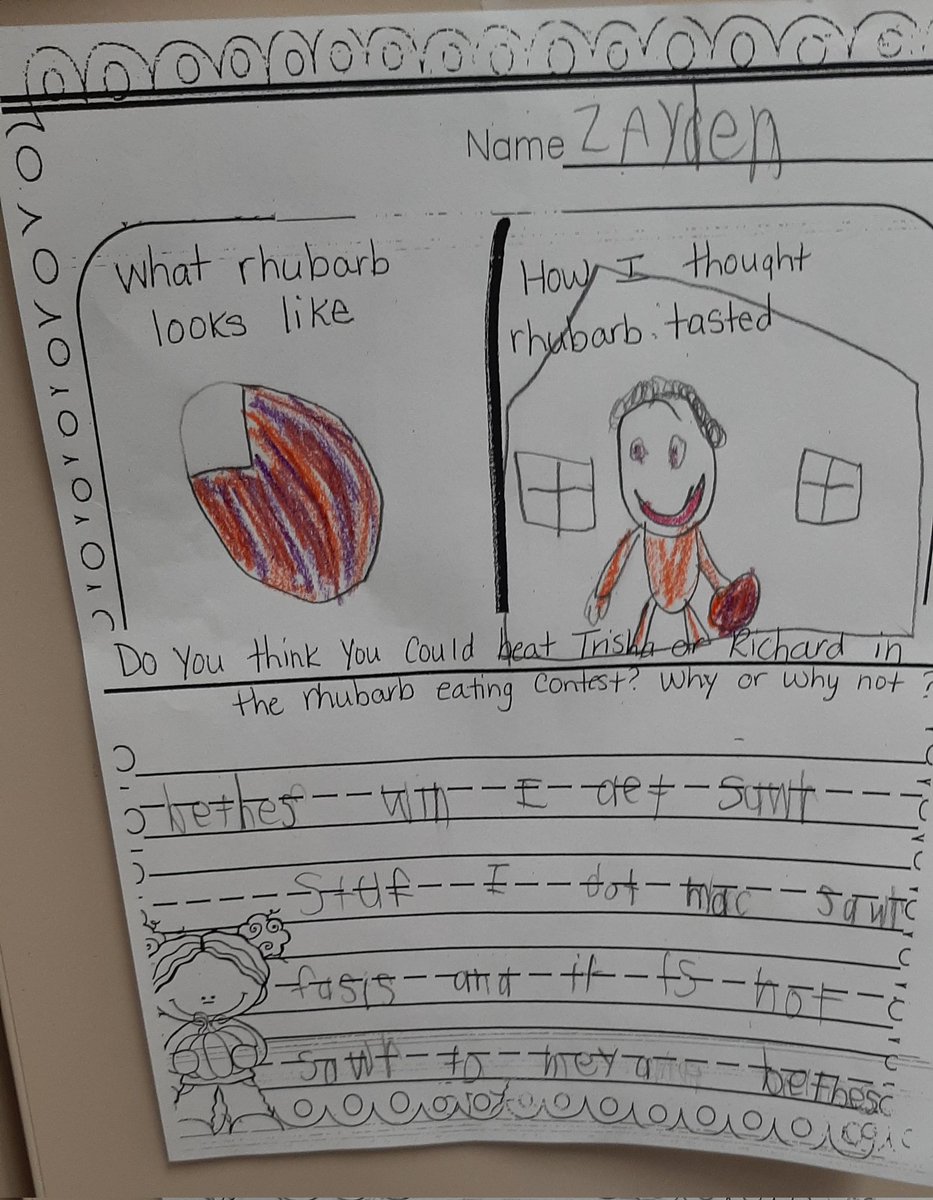 Name ZAYden
What rhubarb
looks like
How I thought
rhubarb tasted
Do You think You Could beat Trisha or Richard in
the rhubarb eating Contest? Why or Why not ?
bethes win I aet sawt
Stuf I dot mac sawt
fasis and it is not
sawt to mey bethes